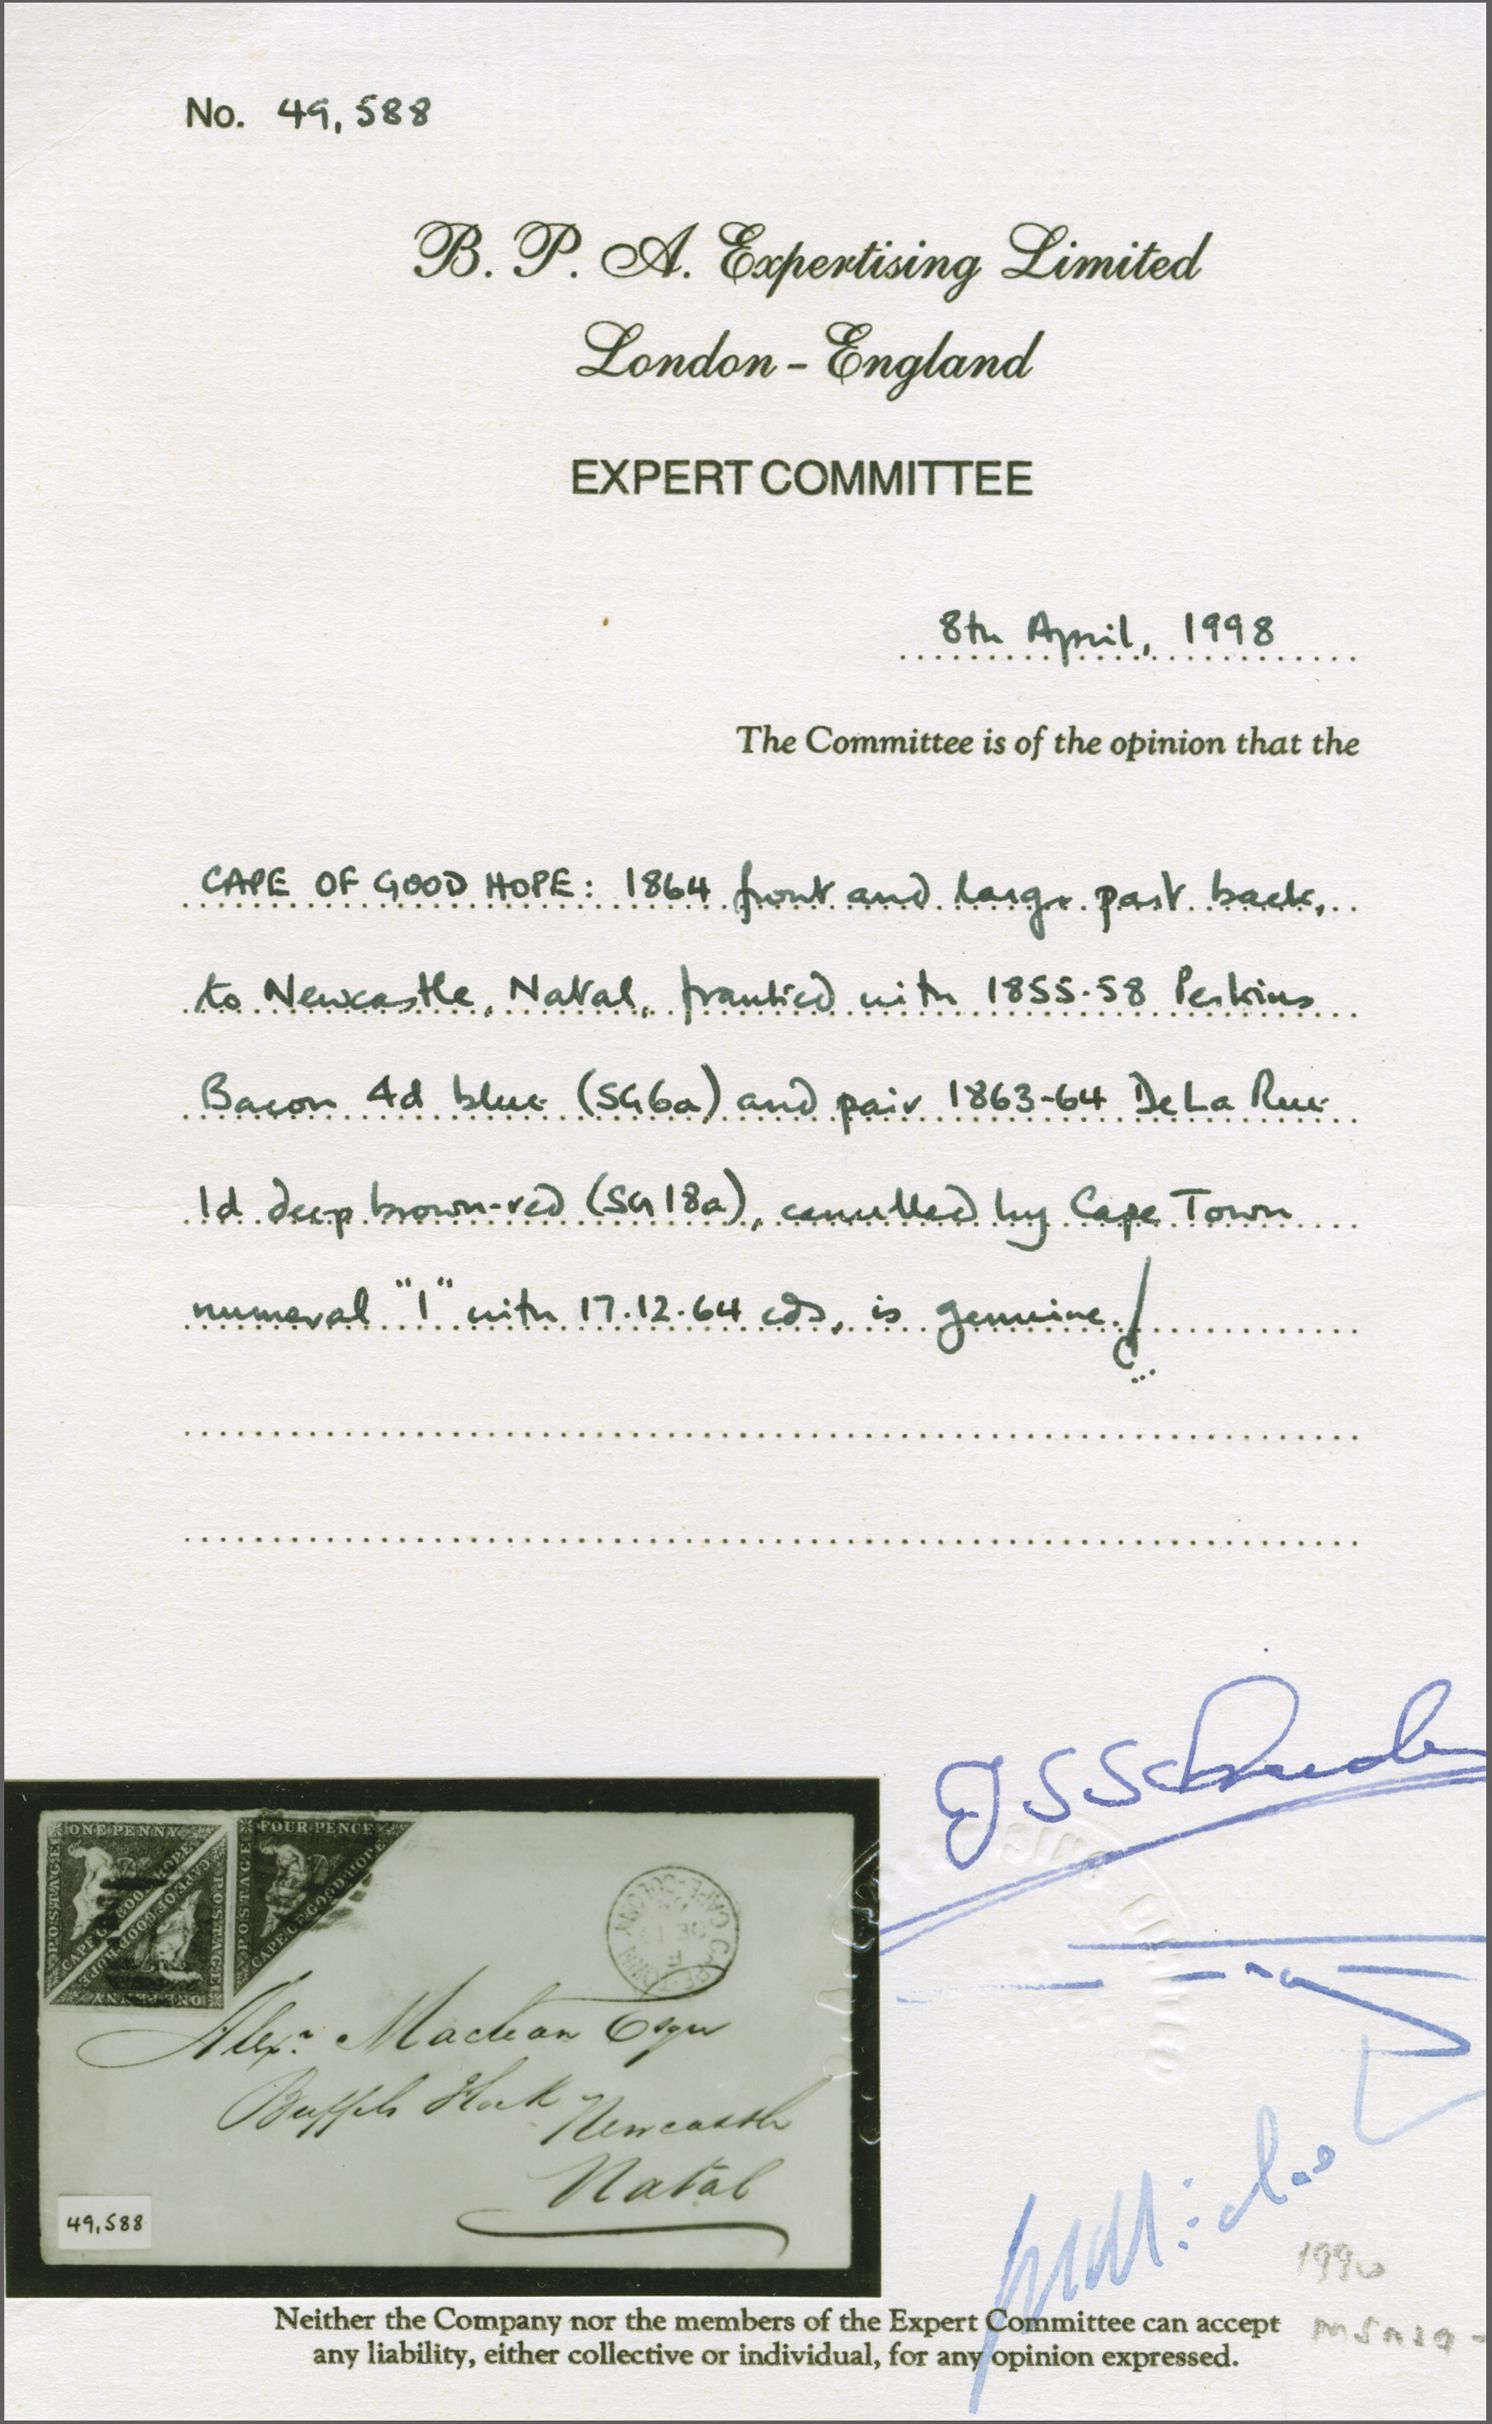 No. 49,588
B. P. A. Expertising Limited
London - England
EXPERT COMMITTEE
8th April, 1998
The Committee is of the opinion that the
CAPE OF GOOD HOPE: 1864 front and large part back,
to Newcastle, Natal, franked with 1855-58 Perkins
Bacon 4d blue (SG6a) and pair 1863-64 De La Rue
1d deep brown-red (SG18a), cancelled by Cape Town
numeral "1" with 17.12.64 cds, is genuine.
ONE PENNY
POSTAGE
CAPE OF GOOD HOPE
CAPE OF GOOD HOPE
POSTAGE
ONE PENNY
FOUR PENCE
POSTAGE
CAPE OF GOOD HOPE
CAPE TOWN
CAPE COLONY
Alexr. Maclean Esqre
Newcastle
Natal
49,588
Neither the Company nor the members of the Expert Committee can accept
any liability, either collective or individual, for any opinion expressed.